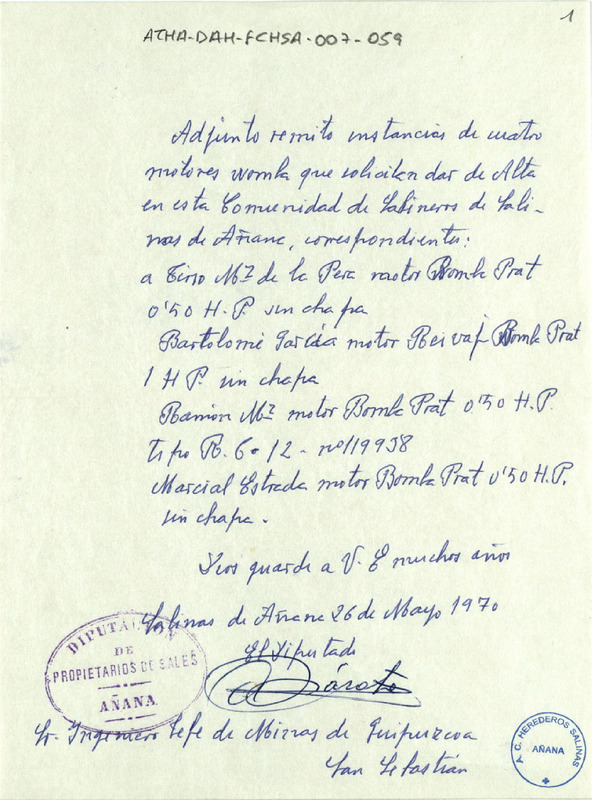 1
ATHA-DAH-FCHSA-007-059
Adjunto remito instancias de cuatro
motores womba que solicitan dar de Alta
en esta Comunidad de Salineros de Sali-
nas de Añana, correspondientes:
a Tirso Mz de la Pera motor Bomba Prat
0'50 H.P. sin chapa
Bartolomé García motor Bomba Prat
1 H P. sin chapa
Ramón Mz motor Bomba Prat 0'50 H.P.
tipo R. 6-12 - nº 119938
Marcial Estrada motor Bomba Prat 0'50 H.P.
sin chapa.
Dios guarde a V. E muchos años
Salinas de Añana 26 de Mayo 1970
El Diputado
DIPUTACIÓN
DE
PROPIETARIOS DE SALES
AÑANA
Sr. Ingeniero Jefe de Minas de Guipuzcoa
San Sebastián
A. C. HEREDEROS SALINAS
AÑANA